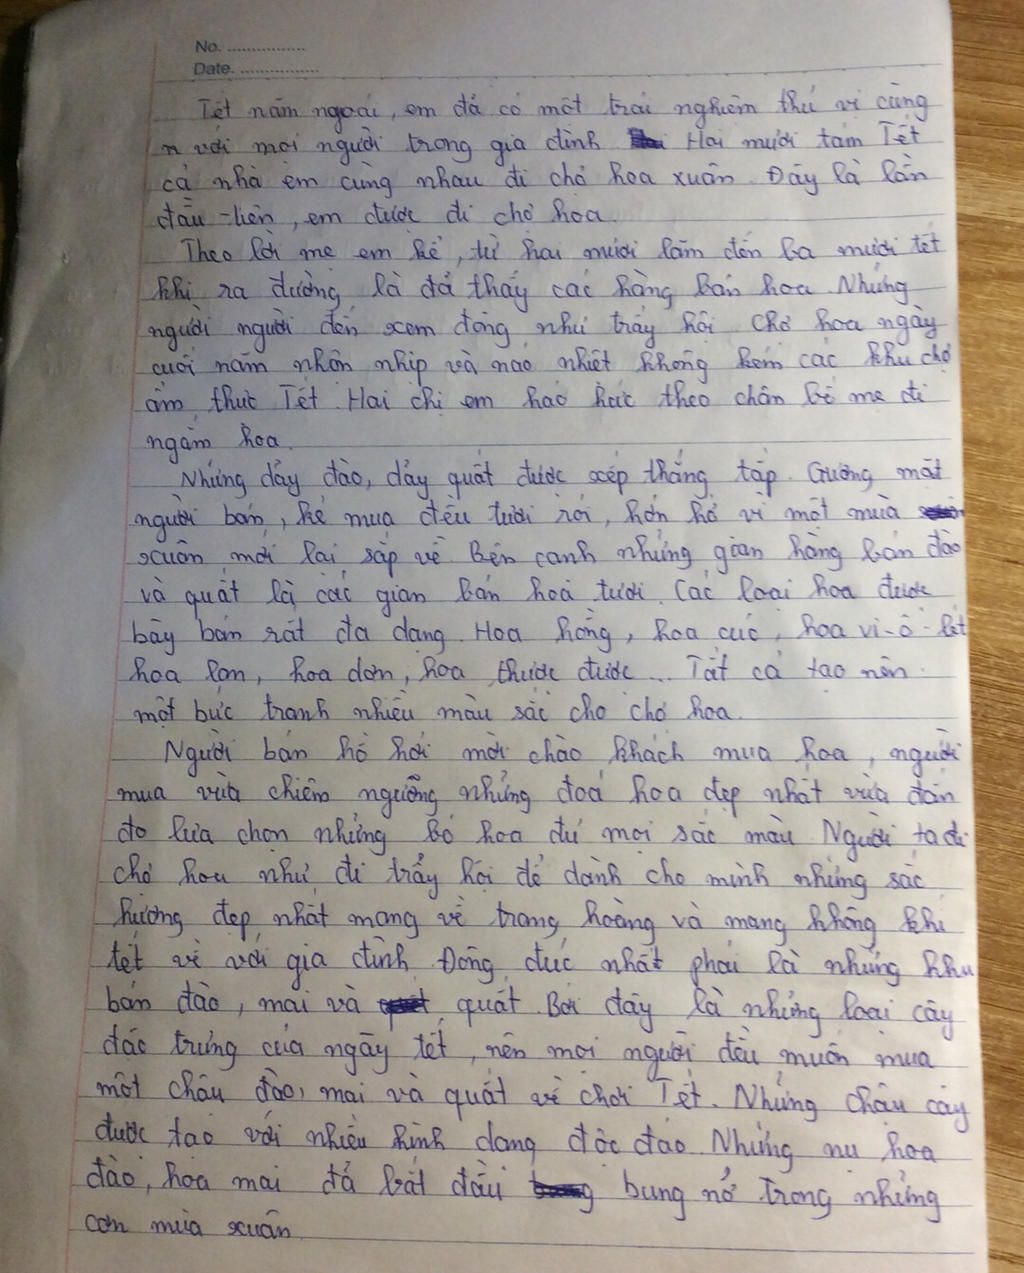 No. ................
Date. ................
Tết năm ngoái, em đã có một trải nghiệm thú vị cùng
với mọi người trong gia đình Hai mươi tám Tết
cả nhà em cùng nhau đi chợ hoa xuân. Đây là lần
đầu tiên, em được đi chợ hoa.
Theo lời mẹ em kể, từ hai mươi lăm đến ba mươi tết
khi ra đường là đã thấy các hàng bán hoa. Những
người người đến xem đông như trảy hội. Chợ hoa ngày
cuối năm nhộn nhịp và náo nhiệt không kém các khu chợ
ẩm thực Tết. Hai chị em háo hức theo chân bố mẹ đi
ngắm hoa.
Những dãy đào, dãy quất được xếp thẳng tắp. Gương mặt
người bán, kẻ mua đều tươi rói, hớn hở vì một mùa
xuân mới lại sắp về. Bên cạnh những gian hàng bán đào
và quất là các gian bán hoa tươi. Các loại hoa được
bày bán rất đa dạng. Hoa hồng, hoa cúc, hoa vi-ô-lét
hoa lan, hoa dơn, hoa thược dược... Tất cả tạo nên
một bức tranh nhiều màu sắc cho chợ hoa.
Người bán hồ hởi mời chào khách mua hoa, người
mua vừa chiêm ngưỡng những đoá hoa đẹp nhất vừa đắn
đo lựa chọn những bó hoa đủ mọi sắc màu. Người ta đi
chợ hoa như đi trẩy hội để dành cho mình những sắc
hương đẹp nhất mang về trang hoàng và mang không khí
tết về với gia đình. Đông đúc nhất phải là những khu
bán đào, mai và quất. Bởi đây là những loại cây
đặc trưng của ngày tết, nên mọi người đều muốn mua
một chậu đào, mai và quất về chơi Tết. Những chậu cây
được tạo với nhiều hình dạng độc đáo. Những nụ hoa
đào, hoa mai đã bắt đầu bung nở trong những
cơn mưa xuân.